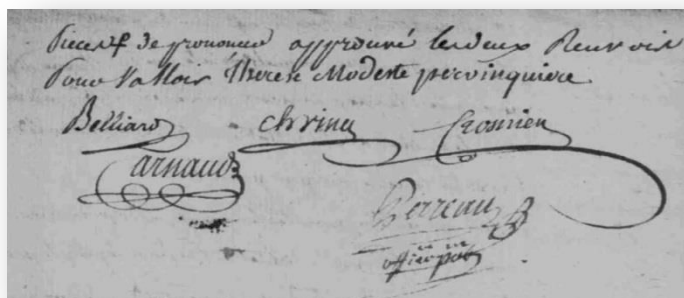 de prononcé approuvé les deux Renvois
Pour Vallois Therese Modeste pervinquiere
Belliard Crosnier
arnaud
Perreau
officier pub